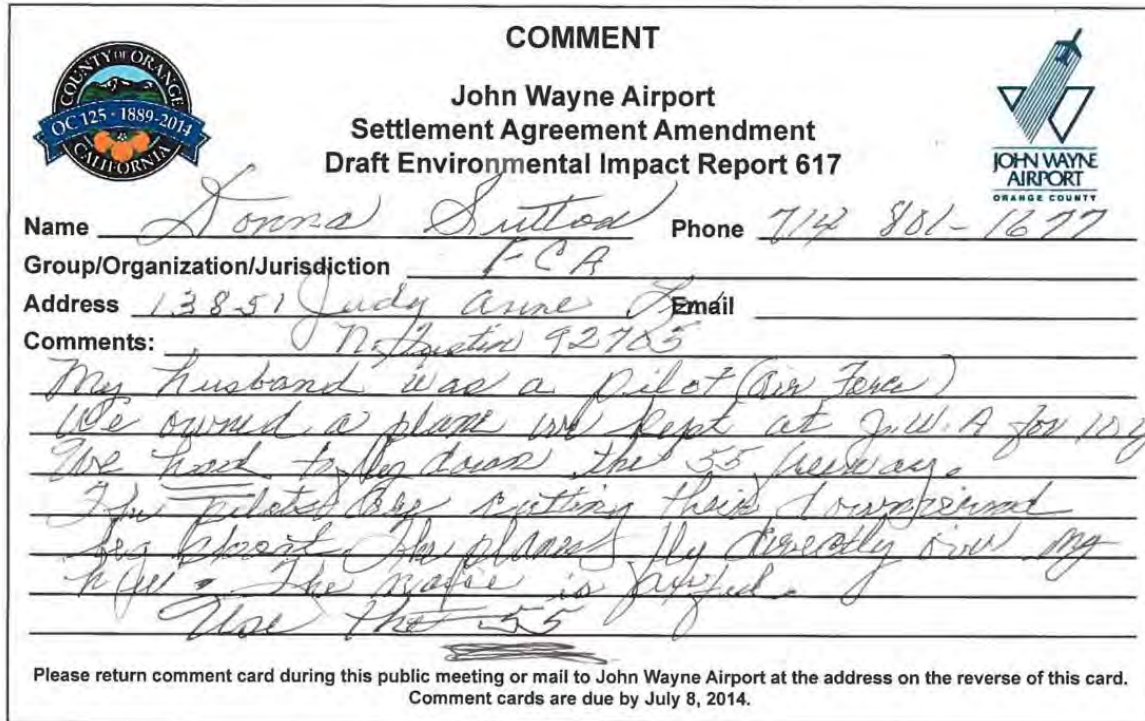 COMMENT
COUNTY OF ORANGE
OC 125 · 1889-2014
CALIFORNIA
John Wayne Airport
Settlement Agreement Amendment
Draft Environmental Impact Report 617
JOHN WAYNE
AIRPORT
ORANGE COUNTY
Name Donna Sutton Phone 714 801-1677
Group/Organization/Jurisdiction FCA
Address 13851 Judy Anne Ln Email
Comments: N. Tustin 92705
My husband was a pilot (Air Force)
We owned a plane we kept at J.W.A for 10 y
We had to fly down the 55 freeway.
The pilots are cutting their downwind
leg short. The planes fly directly over my
The noise is
Use the 55
Please return comment card during this public meeting or mail to John Wayne Airport at the address on the reverse of this card.
Comment cards are due by July 8, 2014.